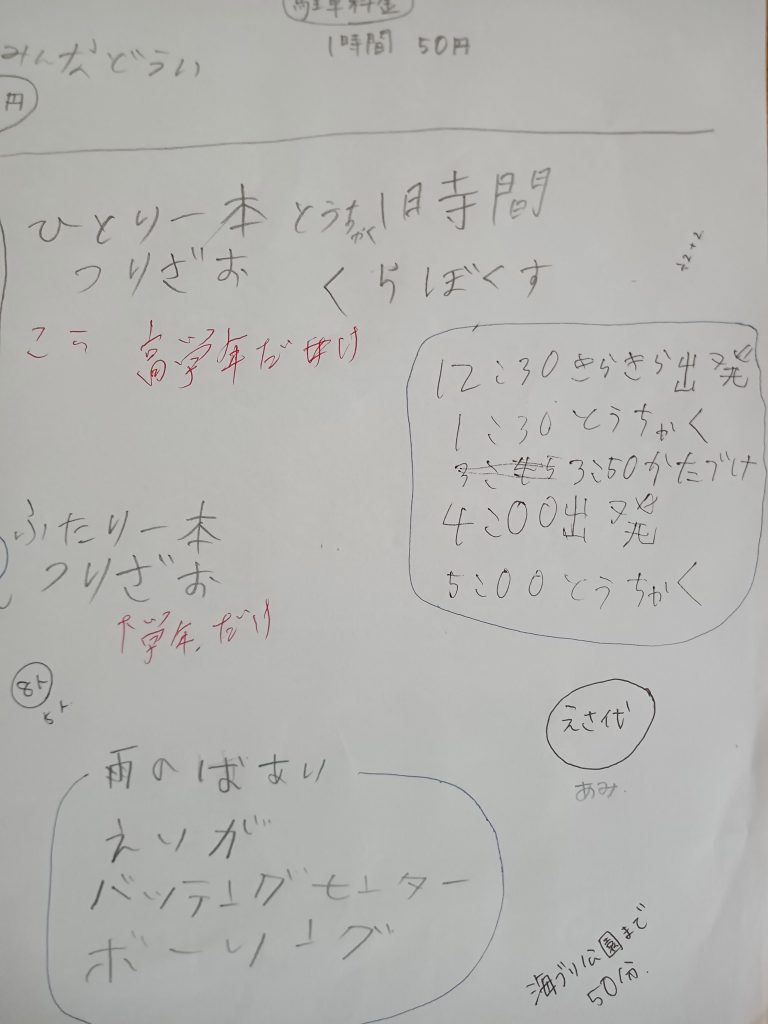 駐車料金
1時間 50円
みんなどうい
円
ひとり一本 とうちゃく1時間
つりざお くらぼくす
高学年だけ
+2+2
12:30 きらきら出発
1:30 とうちゃく
3:50かたづけ
4:00出発
5:00とうちゃく
ふたり一本
つりざお
学年だけ
えさ代
あみ.
雨のばあい
えいが
バッティングセンター
ボーリング
海づり公園まで
50分.